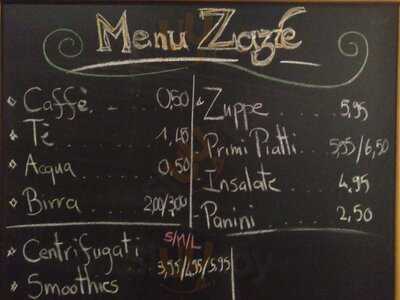 Menu Zazie
Caffè. 0,50
Tè 1,40
Acqua 0,50
Birra 2,00/3,00
Zuppe 5,95
Primi Piatti 5,95/6,50
Insalate 4,95
Panini 2,50
Centrifugati S/M/L
Smoothies 3,95/4,95/5,95